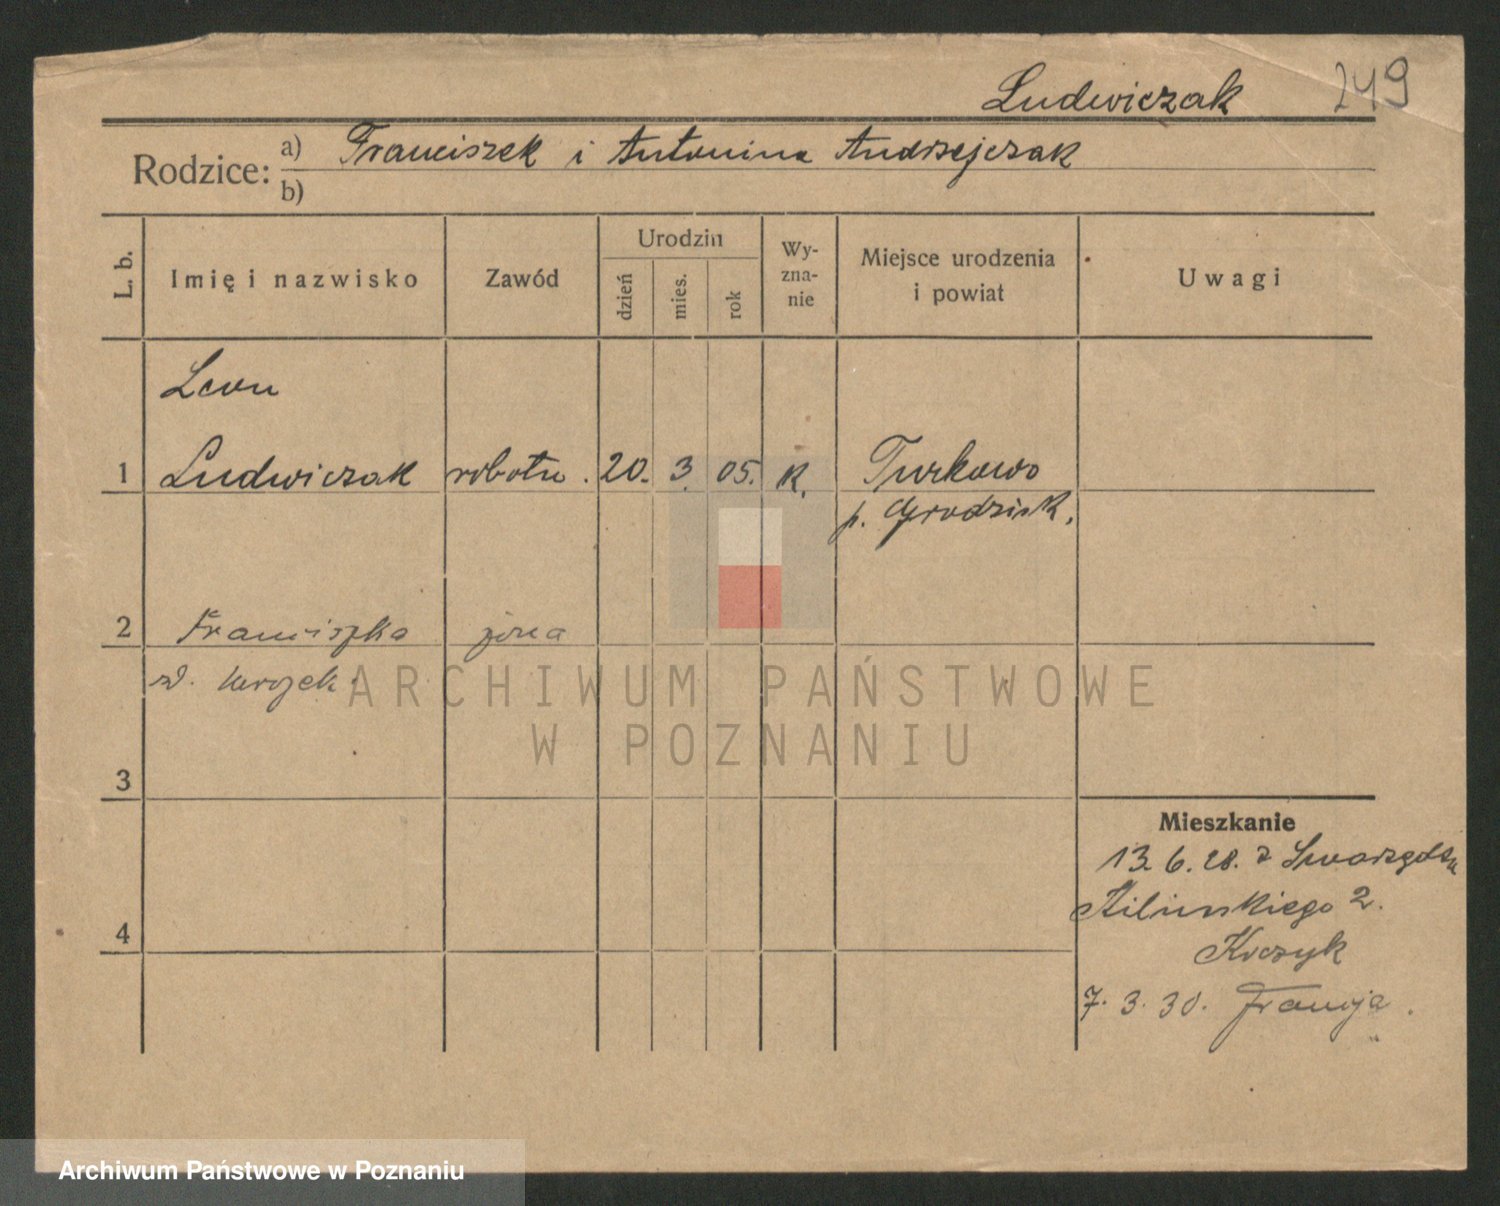 Ludwiczak 249
Rodzice: a) Franciszek i Antonina Andrzejczak
b)
L. b. Imię i nazwisko Zawód Urodzin dzień mies. rok Wyznanie Miejsce urodzenia i powiat Uwagi
Leon
1 Ludwiczak robotn. 20. 3. 05. K. Turkowo
p. Grodzisk.
2 Franciszka żona
3
Mieszkanie
13.6.28. z
Kilińskiego 2.
4
7.3.30. Francja.
ARCHIWUM PAŃSTWOWE
W POZNANIU
Archiwum Państwowe w Poznaniu